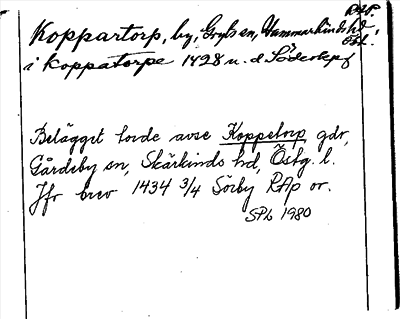 RAP.
Koppartorp, by, Gryts sn, Hammarkinds hd,
Östl.
i koppatorpe 1428 u. d. Söderkp f
Belägget torde avse Koppetorp, gdr,
Gårdeby sn, Skärkinds hd, Östg. l.
Jfr brev 1434 3/4 Sörby RAp or.
SPL 1980